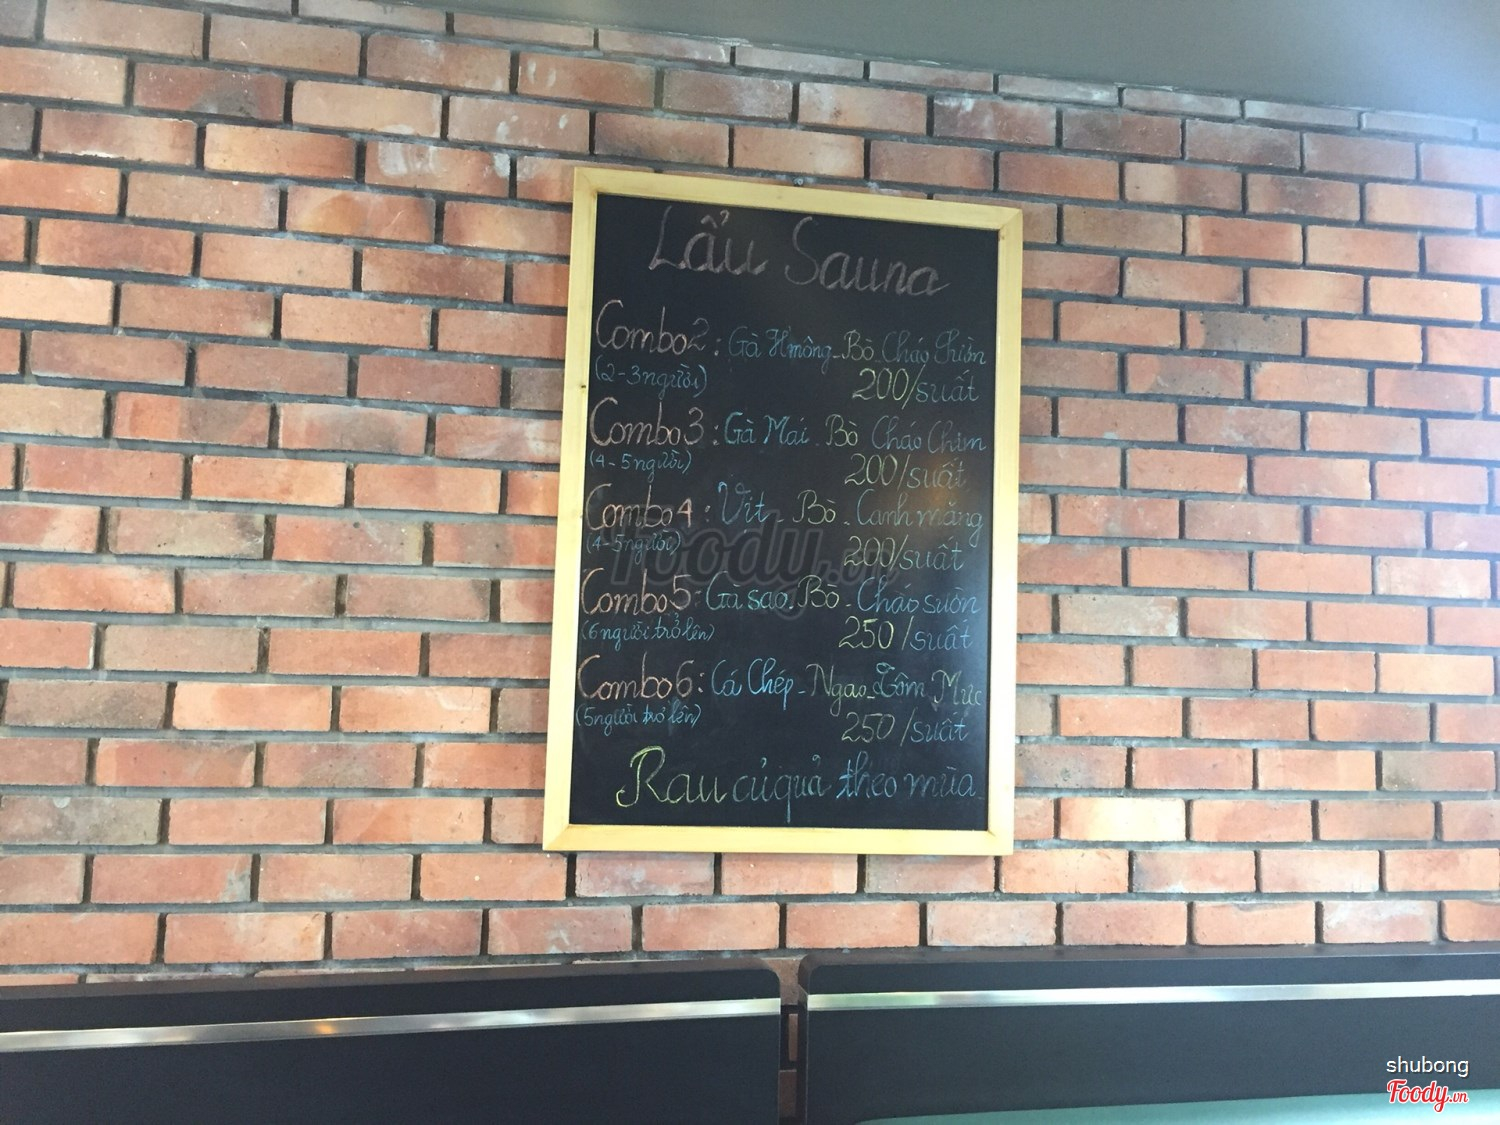 Lẩu Sauna
Combo 2: Gà Hmông - Bò - Cháo
(2-3 người) 200/suất
Combo 3: Gà Mái - Bò Cháo Chim
(4-5 người) 200/suất
Combo 4: Vịt - Bò - Canh măng
(4-5 người) 200/suất
Combo 5: Gà sao - Bò - Cháo sườn
(6 người trở lên) 250/suất
Combo 6: Cá Chép - Ngao - Tôm Mực
(5 người trở lên) 250/suất
Rau củ quả theo mùa
Foody.vn
shubong
Foody.vn